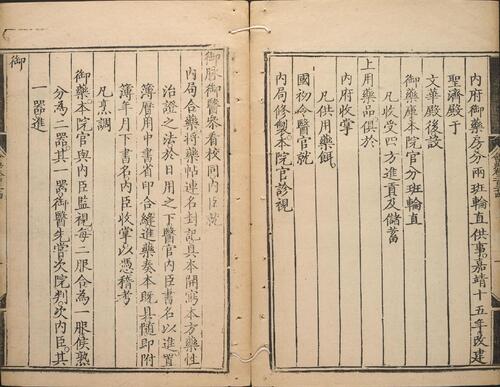 內府御藥房分兩班輪直供事嘉靖十五年改建
聖濟殿于
文華殿後設
御藥庫本院官分班輪直
凡收受四方進貢及儲蓄
上用藥品俱於
內府收掌
凡供用藥餌
國初令醫官就
內局修製本院官診視
御脉御醫叅看校同內臣就
內局合藥將藥帖連名封記具本開寫本方藥性
治證之法於日用之下醫官內臣書名以進置
簿曆用中書省印合縫進藥奏本旣具隨卽附
簿年月下書名內臣收掌以憑稽考
凡烹調
御藥本院官與內臣監視每二服合為一服俟熟
分為二器其一器御醫先嘗次院判次內臣其
一器進
御